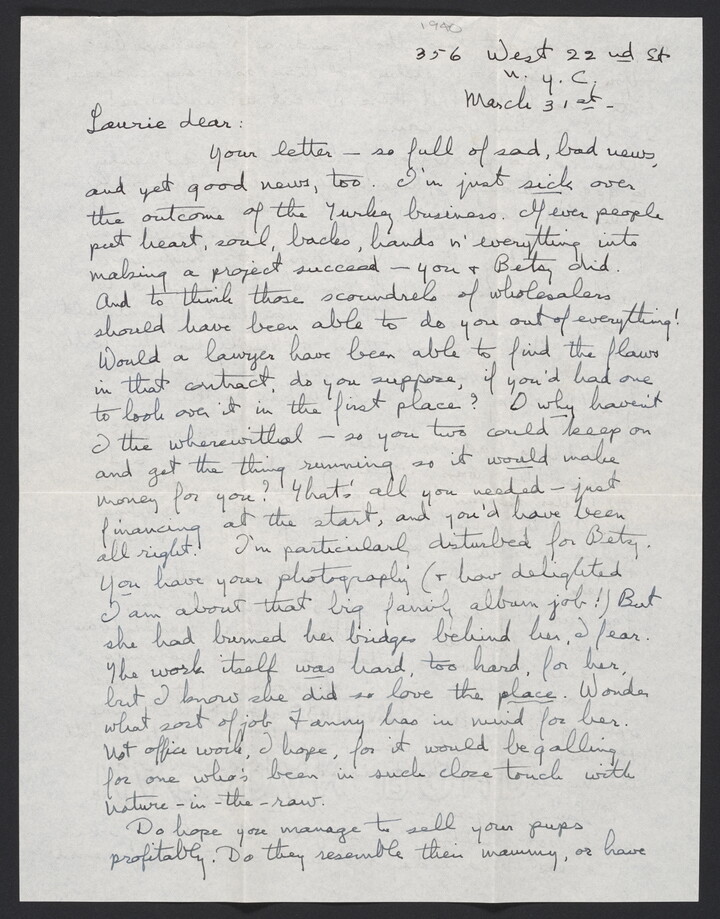 1940
356 West 22nd St
N.Y.C.
March 31st-
Laurie dear:
Your letter - so full of sad, bad news,
and yet good news, too. I'm just sick over
the outcome of the Turkey business. If ever people
put heart, soul, backs, hands n' everything into
making a project succeed - you & Betsy did.
And to think those scoundrels of wholesalers
should have been able to do you out of everything!
Would a lawyer have been able to find the flaws
in that contract, do you suppose, if you'd had one
to look over it in the first place? O why haven't
I the wherewithal - so you two could keep on
and get the thing running so it would make
money for you? That's all you needed - just
financing at the start, and you'd have been
all right! I'm particularly disturbed for Betsy.
You have your photography (& how delighted
I am about that big family album job!) But
she had burned her bridges behind her, I fear.
The work itself was hard, too hard, for her,
but I know she did so love the place. Wonder
what sort of job Fanny has in mind for her.
Not office work, I hope, for it would be galling
for one who's been in such close touch with
nature-in-the-raw.
Do hope you manage to sell your pups
profitably. Do they resemble their mammy, or have